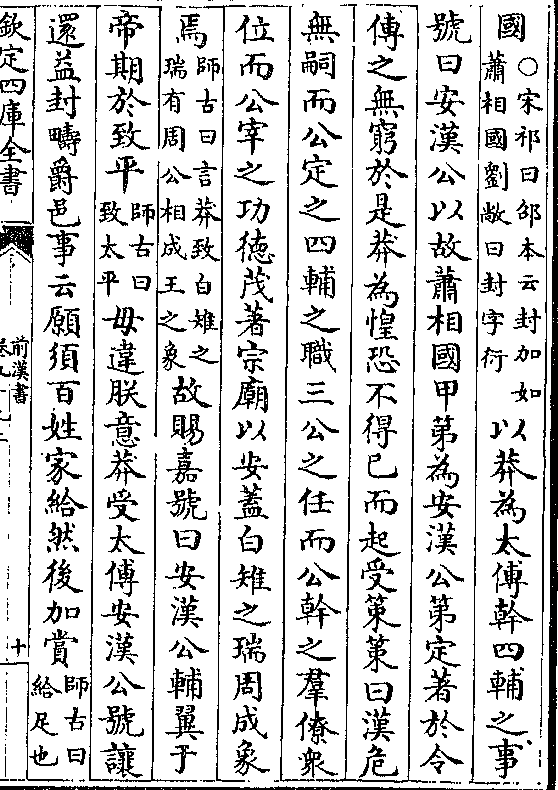 國○宋祁曰郃本云封加如蕭相國劉敞曰封字衍以莽為太傅幹四輔之事
號曰安漢公以故蕭相國甲第為安漢公第定著於令
傳之無窮於是莽為惶恐不得已而起受策策曰漢危
無嗣而公定之四輔之職三公之任而公幹之羣僚衆
位而公宰之功徳茂著宗廟以安蓋白雉之瑞周成象
焉師古曰言莽致白雉之瑞有周公相成王之象故賜嘉號曰安漢公輔翼于
帝期於致平師古曰致太平毋違朕意莽受太傅安漢公號讓
還益封疇爵邑事云願須百姓家給然後加賞師古曰給足也
欽定四庫全書
前漢書
十